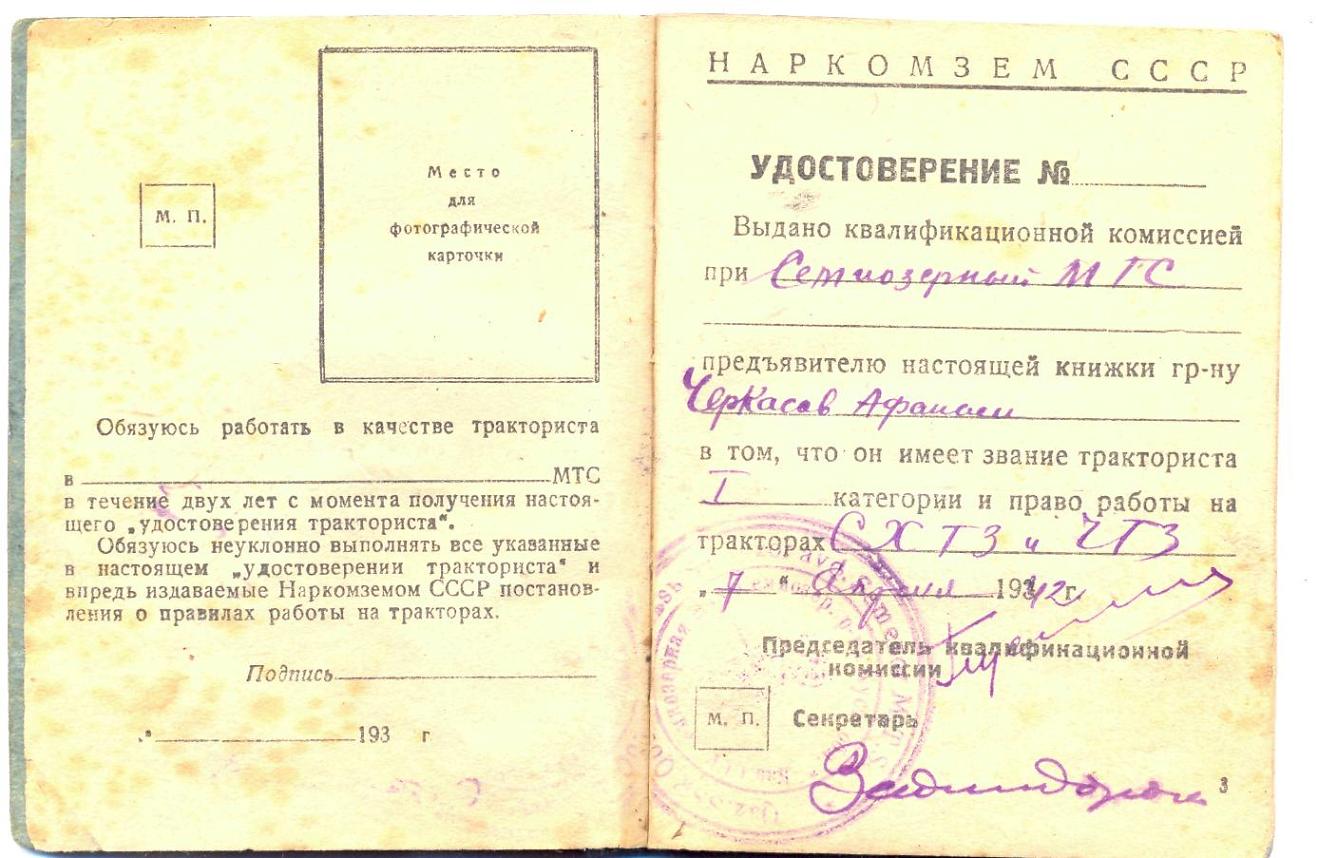 М. П.
Место
для
фотографической
карточки
Обязуюсь работать в качестве тракториста
в МТС
в течение двух лет с момента получения настоя-
щего „удостоверения тракториста“.
Обязуюсь неуклонно выполнять все указанные
в настоящем „удостоверении тракториста“ и
впредь издаваемые Наркомземом СССР постанов-
ления о правилах работы на тракторах.
Подпись
„ “ 193 г
НАРКОМЗЕМ СССР
УДОСТОВЕРЕНИЕ №
Выдано квалификационной комиссией
при Семиозерный МТС
предъявителю настоящей книжки гр-ну
Черкасов Афанаси
в том, что он имеет звание тракториста
I категории и право работы на
тракторах СХТЗ и ЧТЗ
„7“ Апреля 1942 г.
Председатель квалификационной
комиссии
М. П. Секретарь
3